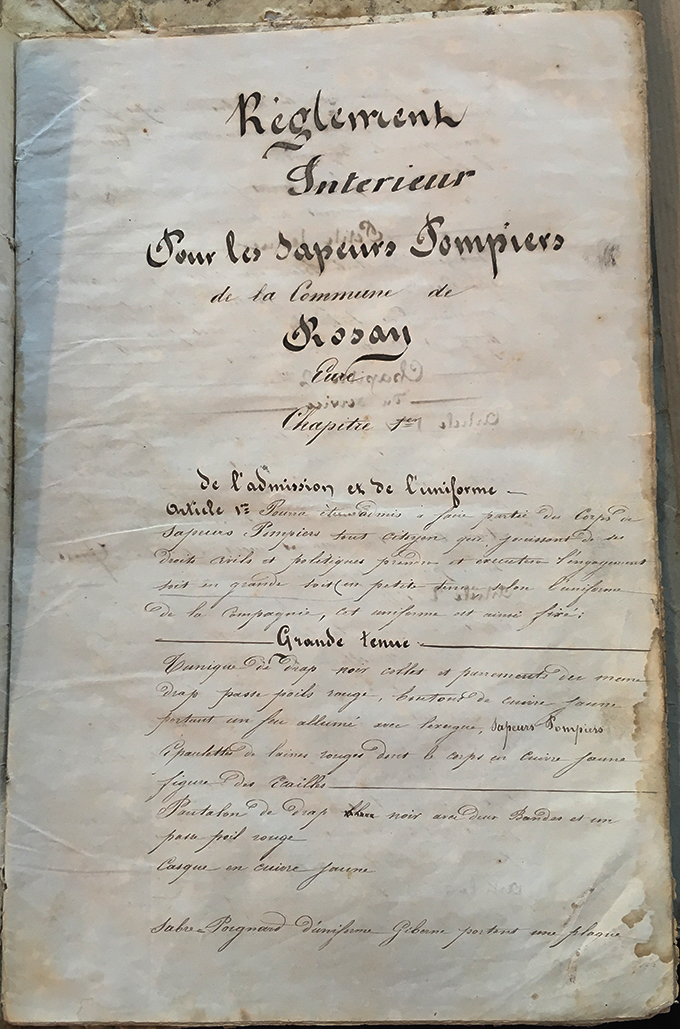 Règlement
Intérieur
Pour les Sapeurs Pompiers
de la Commune de
Rosay
Eure
Chapitre 1er
de l'admission et de l'uniforme
Article 1er Pourra être admis à faire partie du Corps de
Sapeurs Pompiers tout citoyen qui jouissant de ses
droits civils et politiques prendra et executera l'engagement
soit en grande soit en petite tenue selon l'uniforme
de la compagnie, cet uniforme est ainsi fixé:
Grande tenue
Tunique de drap noir collet et parements du meme
drap passe poils rouge, boutons de cuivre jaune
portant un feu allumé avec lexergue, Sapeurs Pompiers
Epaulettes de laines rouges dont le corps en cuivre jaune
figure des écailles
Pantalon de drap noir avec deux Bandes et un
passe poil rouge
Casque en cuivre jaune
Sabre-Poignard d'uniforme Giberne portant une plaque